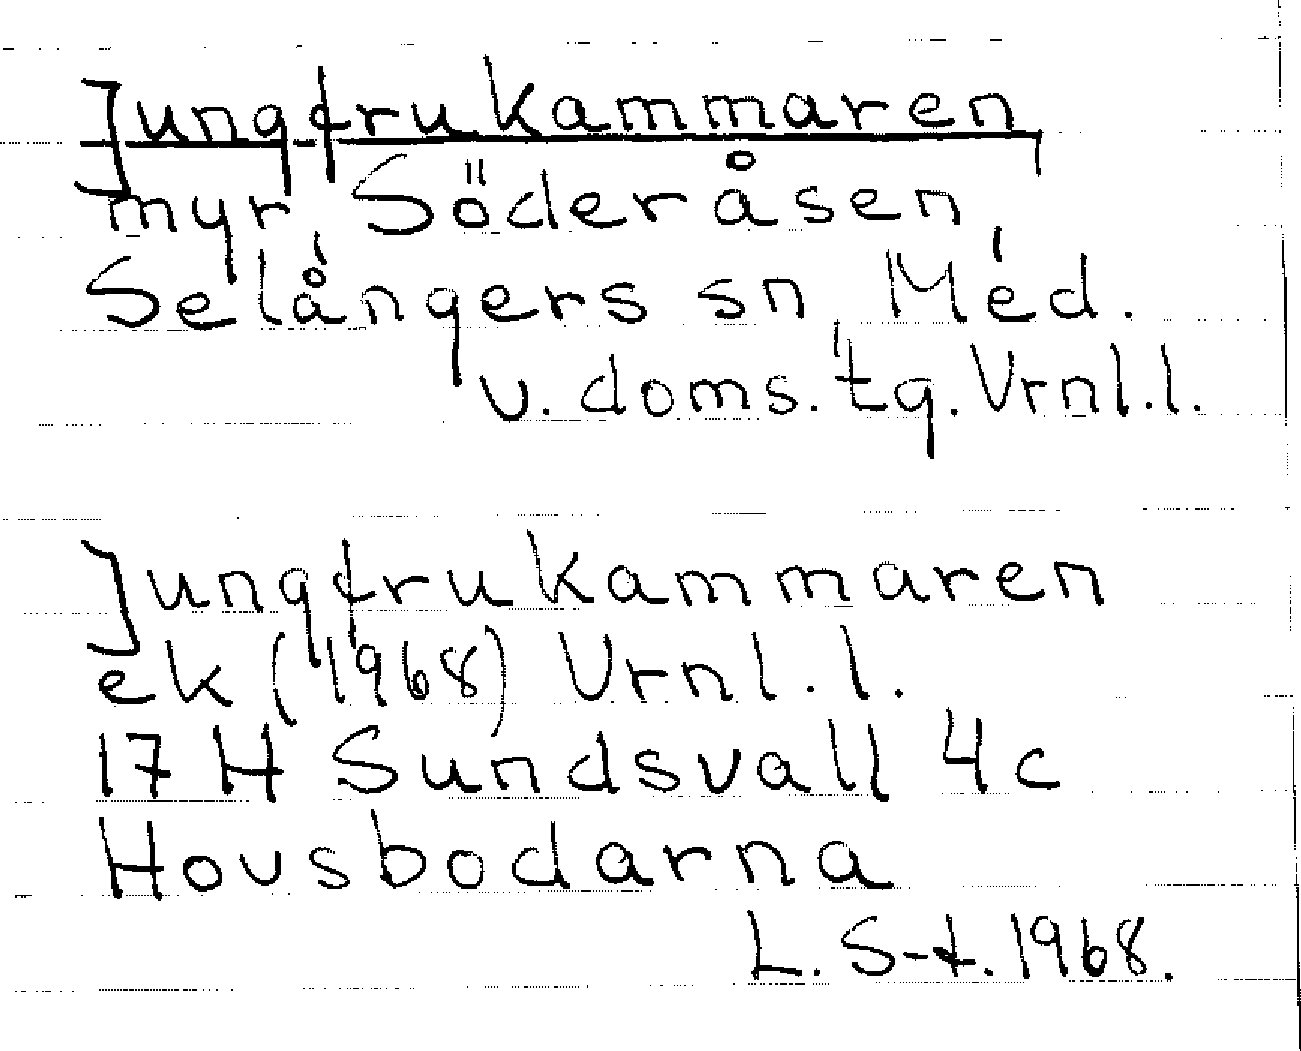 Jungfrukammaren,
myr Söderåsen,
Selångers sn Méd.
v. doms. tg. Vrnl.l.
Jungfrukammaren
ek (1968) Vrnl.l.
17 H Sundsvall 4c
Hovsbodarna
L. S-t. 1968.